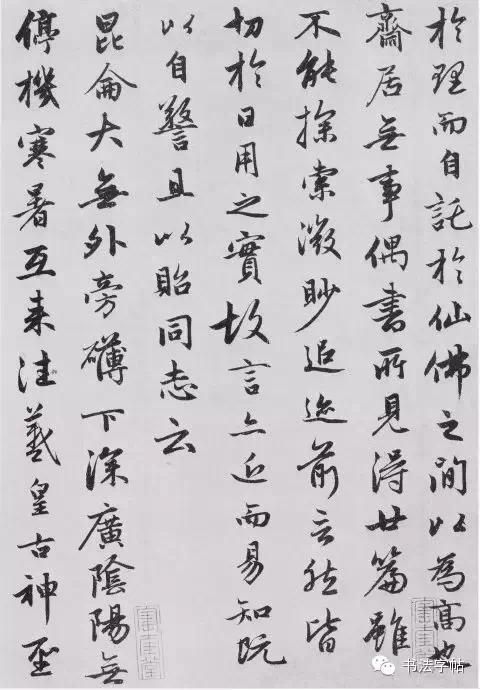 於理而自託於仙佛之間以為高也
齋居無事偶書所見得廿篇雖
不能探索微眇追迹前言然皆
切於日用之實故言亦近而易知既
以自警且以貽同志云
昆侖大無外旁礴下深廣陰陽無
停機寒暑互来往羲皇古神聖
书法字帖